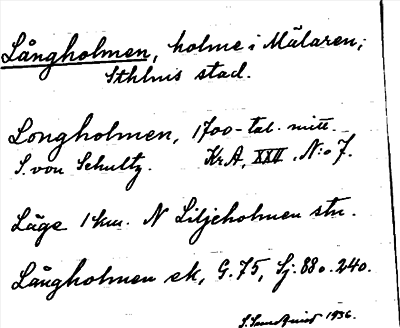 Långholmen, holme i Mälaren;
Sthlms stad.
Longholmen, 1700-tal. mitt.
S. von Schultz. Kr.A, XXII. N:o 7.
Läge 1 km. N Liljeholmen stn.
Långholmen ek, G. 75, Sj. 88 o. 240.
S. Sundqvist 1936.